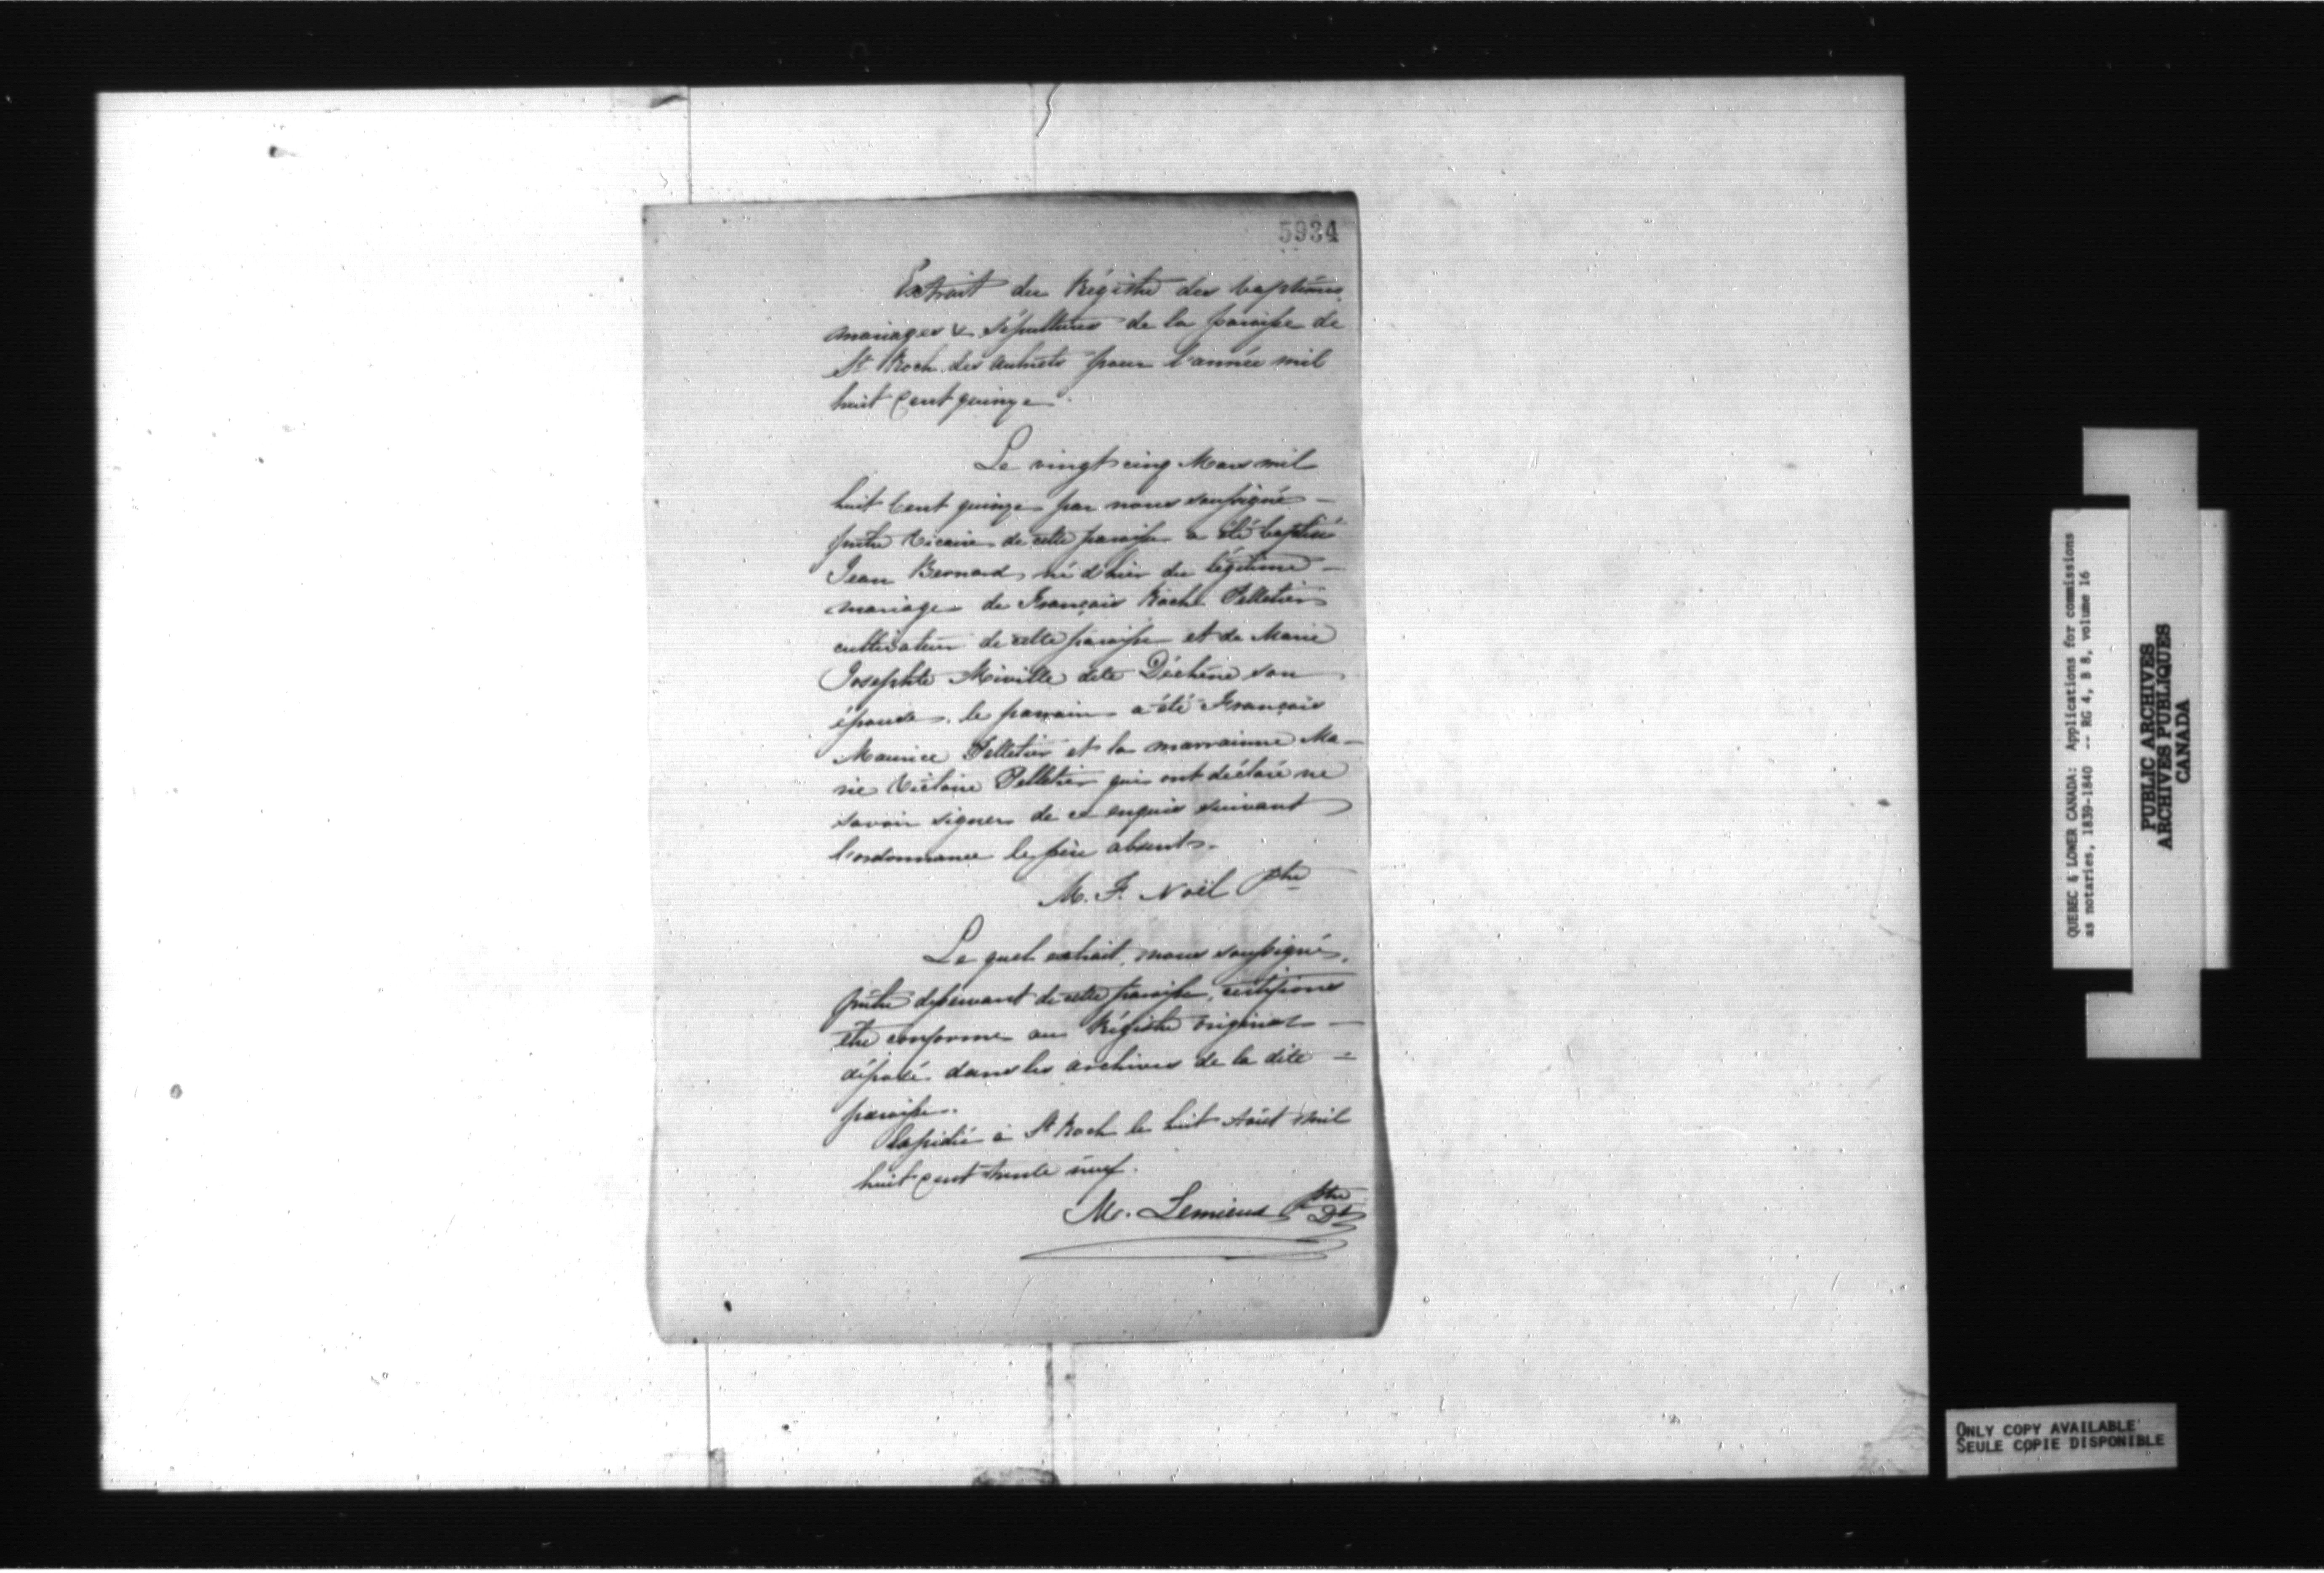 5934
Extrait du Régistre des baptêmes,
mariages & sépultures de la paroisse de
St Roch des Aulnets pour l'année mil
huit cent quinze.
Le vingt cinq Mars mil
huit Cent quinze par nous soussigné —
prêtre Vicaire de cette paroisse a été baptisé
Jean Bernard né d'hier du légitime —
mariage de François Roch Pelletier
cultivateur de cette paroisse et de Marie
Josephte Miville dite Déchêne son
épouse. le parrain a été François
Maurice Pelletier et la marrainne Ma-
rie Victoire Pelletier qui ont déclaré ne
savoir signer de ce enquis suivant
l'ordonnance le père absent.
M. F. Noël ptre
Le quel extrait, nous soussigné,
prêtre desservant de cette paroisse, certifions
être conforme au Régistre original —
déposé dans les archives de la dite =
paroisse.
Expédié à St Roch le huit Août mil
huit cent trente neuf.
M. Lemieux ptre
Dt
QUEBEC & LOWER CANADA: Applications for commissions
as notaries, 1839-1840 -- RG 4, B 8, volume 16
PUBLIC ARCHIVES
ARCHIVES PUBLIQUES
CANADA
ONLY COPY AVAILABLE
SEULE COPIE DISPONIBLE